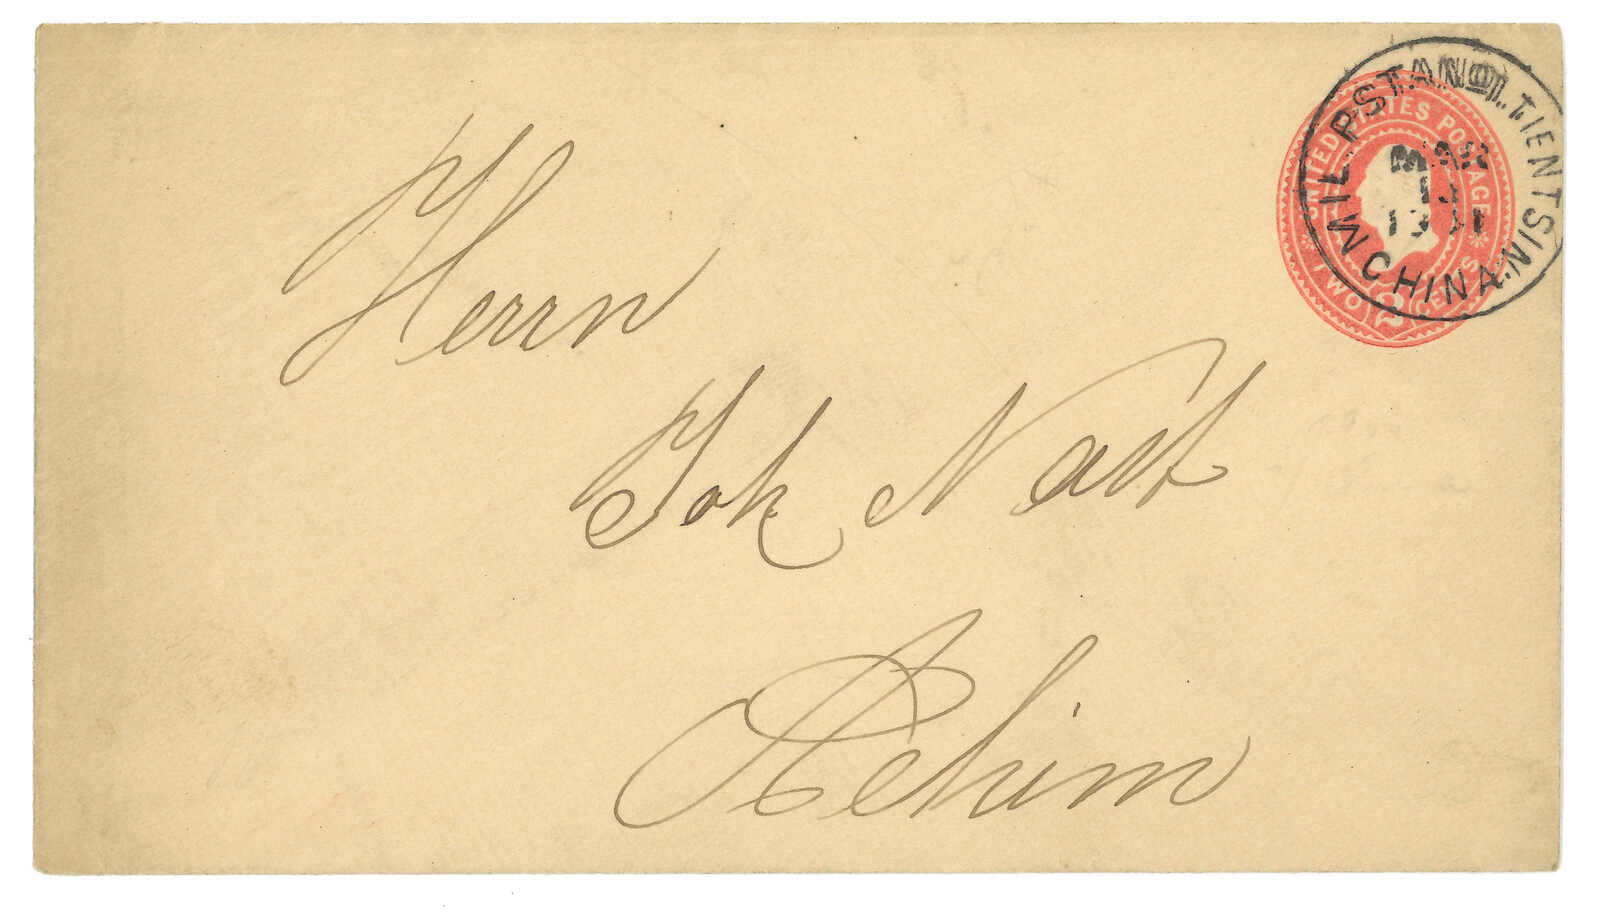 MIL. P. STA. NO. 1. TIENTSIN,
CHINA.
MAR
13
1901
UNITED STATES POSTAGE
TWO 2 CENTS
Herrn
Joh Nast
Pekim